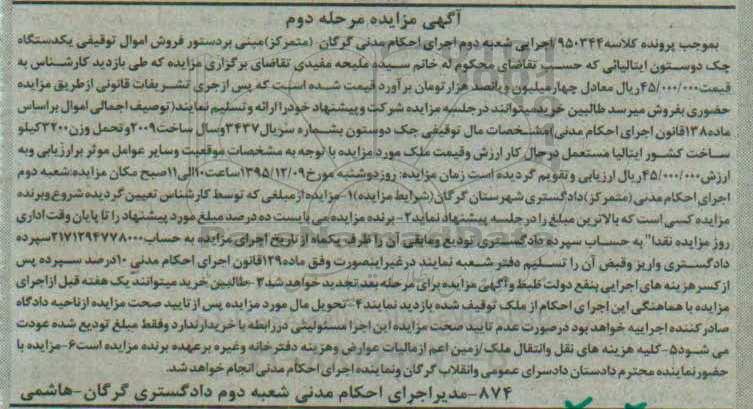 آگهی مزایده مرحله دوم
بموجب پرونده کلاسه ۹۵۰۳۴۴ اجرایی شعبه دوم اجرای احکام مدنی گرگان (متمرکز)مبنی بردستور فروش اموال توقیفی یکدستگاه
جک دوستون ایتالیائی که حسب تقاضای محکوم له خانم سیده ملیحه مفیدی تقاضای برگزاری مزایده که طی بازدید کارشناس به
قیمت۴۵/۰۰۰/۰۰۰ریال معادل چهارمیلیون وپانصد هزارتومان برآورد قیمت شده است که پس ازجری تشریفات قانونی ازطریق مزایده
حضوری بفروش میرسد طالبین خریدمیتوانند درجلسه مزایده شرکت وپیشنهاد خودرا ارائه وتسلیم نمایند(توصیف اجمالی اموال براساس
ماده۱۳۸قانون اجرای احکام مدنی)مشخصات مال توقیفی جک دوستون بشماره سریال۳۴۳۷وسال ساخت۲۰۰۹وتحمل وزن۳۲۰۰کیلو
ساخت کشور ایتالیا مستعمل درحال کار ارزش وقیمت ملک مورد مزایده با توجه به مشخصات موقعیت وسایر عوامل موثر برارزیابی وبه
ارزش۴۵/۰۰۰/۰۰۰ریال ارزیابی وتقویم گردیده است زمان مزایده: روزدوشنبه مورخ۱۳۹۵/۱۲/۰۹ساعت۱۰الی۱۱صبح مکان مزایده:شعبه دوم
اجرای احکام مدنی (متمرکز)دادگستری شهرستان گرگان(شرایط مزایده)۱-مزایده ازمبلغی که توسط کارشناس تعیین گردیده شروع وبرنده
مزایده کسی است که بالاترین مبلغ را درجلسه پیشنهاد نماید۲-برنده مزایده می بایست ده درصد مبلغ مورد پیشنهاد را تا پایان وقت اداری
روز مزایده نقدا" به حساب سپرده دادگستری تودیع ومابقی آن را ظرف یکماه ازتاریخ اجرای مزایده به حساب۲۱۷۱۲۹۴۷۷۸۰۰۰سپرده
دادگستری واریز وقبض آن را تسلیم دفتر شعبه نمایند درغیراینصورت وفق ماده۱۲۹قانون اجرای احکام مدنی ۱۰درصد سپرده پس
ازکسرهزینه های اجرایی بنفع دولت ظبط وآگهی مزایده برای مرحله بعد تجدید خواهد شد۳-طالبین خرید میتوانند یک هفته قبل ازاجرای
مزایده با هماهنگی این اجرای احکام از ملک توقیف شده بازدید نمایند۴-تحویل مال مورد مزایده پس ازتایید صحت مزایده ازناحیه دادگاه
صادرکننده اجراییه خواهد بود درصورت عدم تایید صحت مزایده این اجرا مسئولیتی دررابطه با خریدارندارد وفقط مبلغ تودیع شده عودت
می شود۵-کلیه هزینه های نقل وانتقال ملک/زمین اعم ازمالیات عوارض وهزینه دفترخانه وغیره برعهده برنده مزایده است۶-مزایده با
حضورنماینده محترم دادستان دادسرای عمومی وانقلاب گرگان ونماینده اجرای احکام مدنی انجام خواهد شد.
۸۷۴-مدیراجرای احکام مدنی شعبه دوم دادگستری گرگان-هاشمی